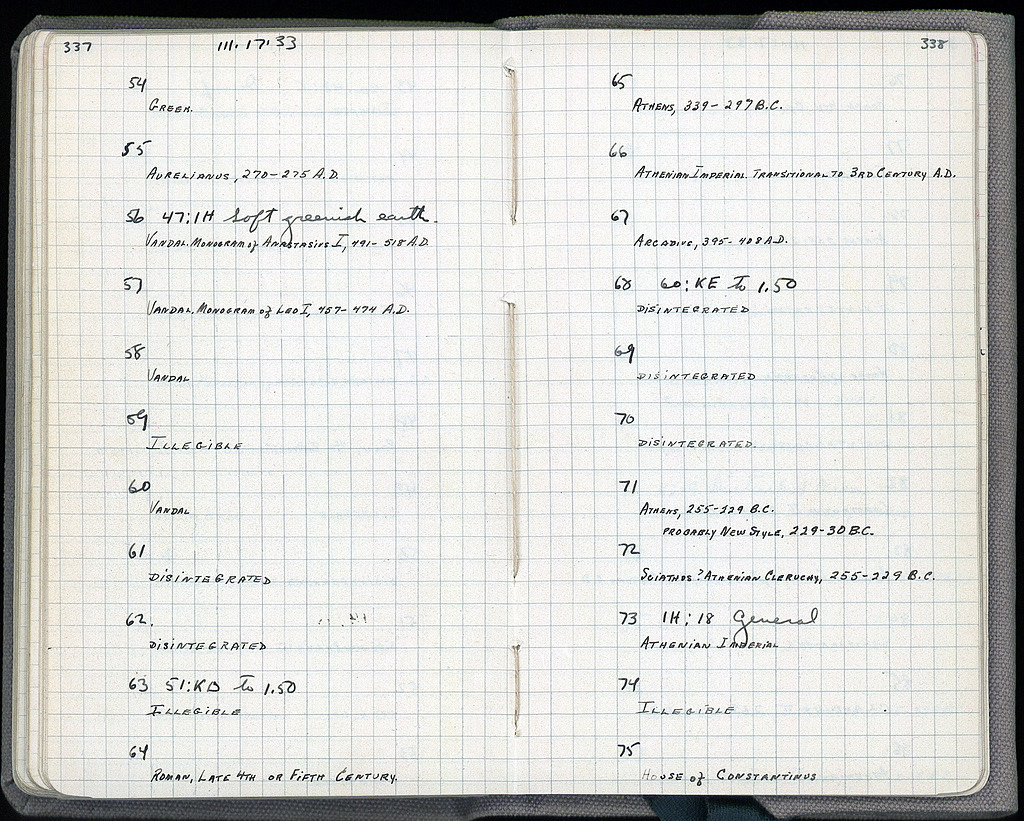 337
III. 17. 33
54
GREEK.
55
AURELIANUS, 270-275 A.D.
56 47:IH Soft greenish earth.
VANDAL. MONOGRAM of ANASTASIUS I, 491-518 A.D.
57
VANDAL. MONOGRAM of LEO I, 457-474 A.D.
58
VANDAL
59
ILLEGIBLE
60
VANDAL
61
DISINTEGRATED
62.
DISINTEGRATED
63 51:KD to 1.50
ILLEGIBLE
64
ROMAN, LATE 4TH OR FIFTH CENTURY.
338
65
ATHENS, 339-297 B.C.
66
ATHENIAN IMPERIAL. TRANSITIONAL TO 3RD CENTURY A.D.
67
ARCADIUS, 395-408 A.D.
68 60:KE to 1.50
DISINTEGRATED
69
DISINTEGRATED
70
DISINTEGRATED.
71
ATHENS, 255-229 B.C.
PROBABLY NEW STYLE, 229-30 B.C.
72
SCIATHOS? ATHENIAN CLERUCHY, 255-229 B.C.
73 IH; 18 General
ATHENIAN IMPERIAL
74
ILLEGIBLE
75
HOUSE of CONSTANTINUS